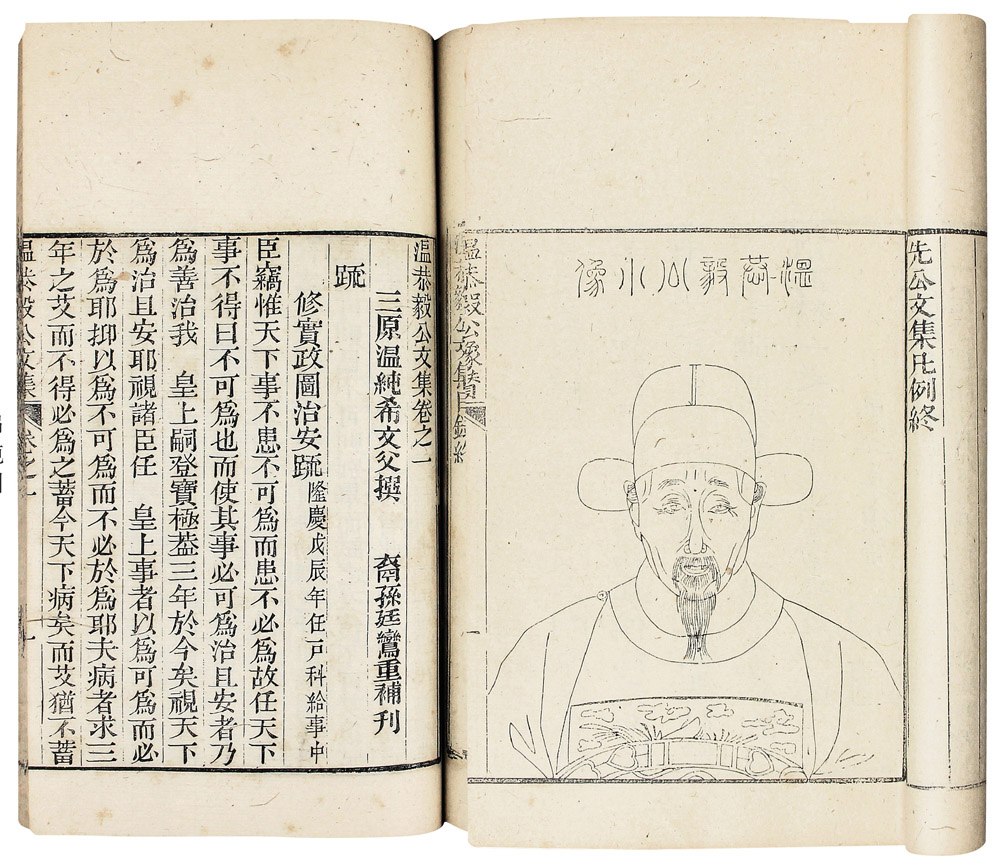 先公文集凡例終
温恭毅公小像
温恭毅公像贊
温恭毅公文集卷之一
三原温純希文父撰 裔孫廷鸞重補刊
疏
修實政圖治安疏 隆慶戊辰年任戶科給事中
臣竊惟天下事不患不可爲而患不必爲故任天下
事不得曰不可爲也而使其事必可爲治且安者乃
爲善治我 皇上嗣登寶極葢三年於今矣視天下
爲治且安耶視諸臣任 皇上事者以爲可爲而必
於爲耶抑以爲不可爲而不必於爲耶夫病者求三
年之艾而不得必爲之蓄今天下病矣而艾猶不蓄
温恭毅公文集 卷之一 一